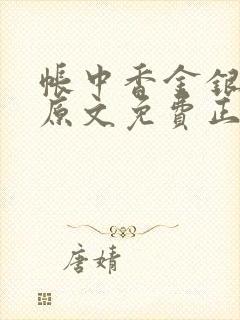 帐中香金银
原文免費正
唐婧